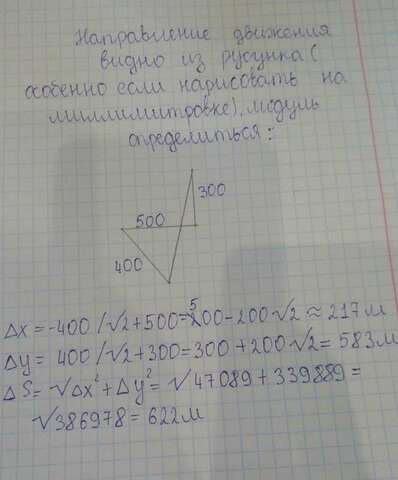 Направление движения
видно из русунка (
особенно если нарисовать на
миллимитровке), модуль
определиться:
300
500
400
Δx = -400/√2+500=500-200·√2 ≈ 217м
Δy = 400/√2+300=300+200·√2= 583м
ΔS= √Δx²+Δy² = √47089+339889 =
√386978 = 622м